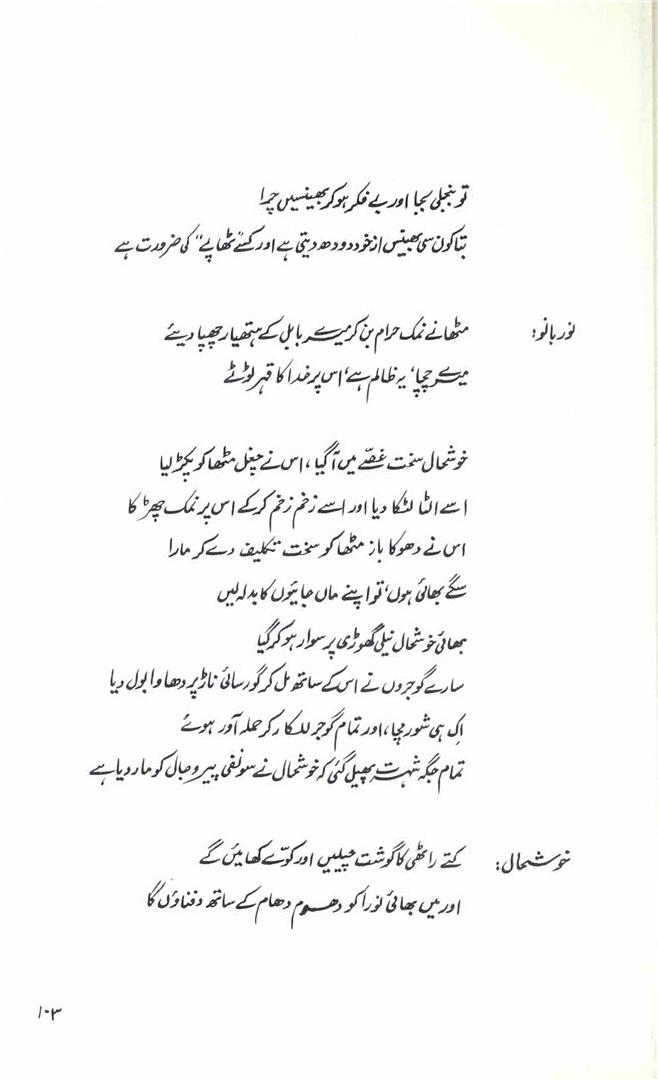 تو بنجلی بجا اور بے فکر ہو کر بھینسیں چرا
بتا کون سی بھینس از خود دودھ دیتی ہے اور کسے "تھاپے" کی ضرورت ہے
نور بانو: مٹھا نے نمک حرام بن کر میرے بابل کے ہتھیار چھپا دیئے
میرے چچا، یہ ظالم ہے، اس پر خدا کا قہر ٹوٹے
خوشحال سخت غصّے میں آ گیا، اس نے چغل مٹھا کو پکڑ لیا
اسے الٹا لٹکا دیا اور اسے زخم زخم کر کے اس پر نمک چھڑکا
اس نے دھوکا باز مٹھا کو سخت تکلیف دے کر مارا
سگے بھائی ہوں، تو اپنے ماں جائیوں کا بدلہ لیں
بھائی خوشحال نیلی گھوڑی پر سوار ہو کر گیا
سارے گوجروں نے اس کے ساتھ مل کر گورسائی ناڑ پر دھاوا بول دیا
اِک ہی شور مچا، اور تمام گوجر للکار کر حملہ آور ہوئے
تمام جگہ شہرت پھیل گئی کہ خوشحال نے سونفی پیروجال کو مار دیا ہے
خوشحال: کتے راٹھی کا گوشت چیلیں اور کوّے کھائیں گے
اور میں بھائی نورا کو دھوم دھام کے ساتھ دفناؤں گا
۱۰۳